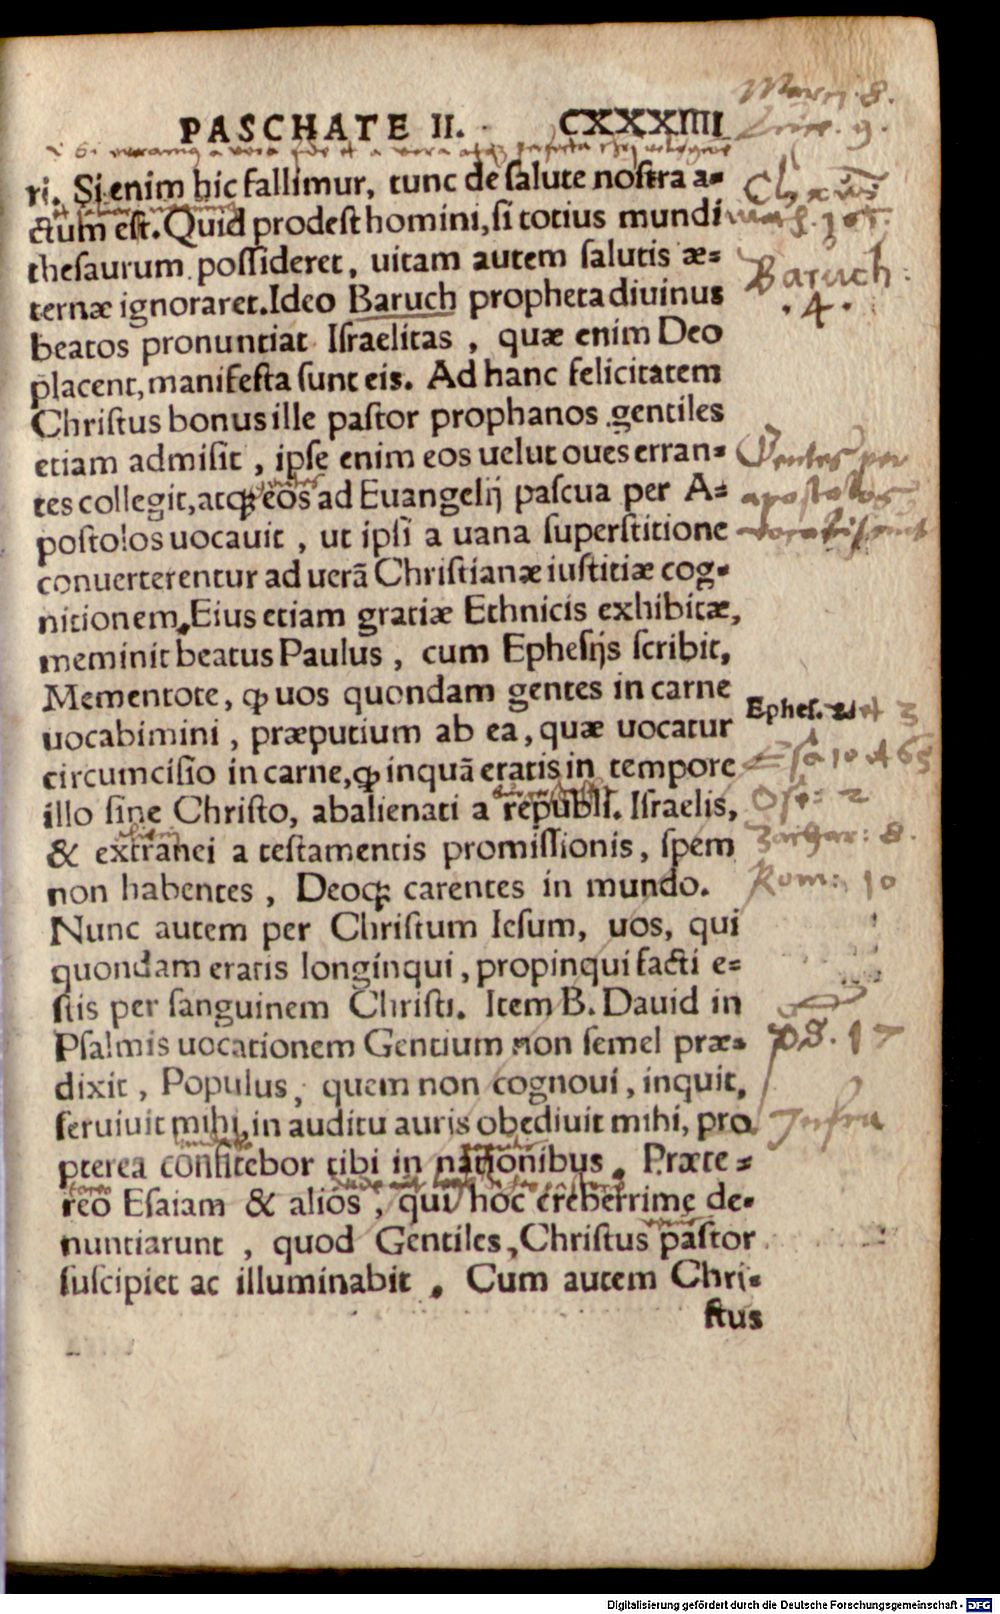 PASCHATE II. CXXXIIII
ri. Si enim hic fallimur, tunc de salute nostra a=
ctum est. Quid prodest homini, si totius mundi
thesaurum possideret, uitam autem salutis æ=
ternæ ignoraret. Ideo Baruch propheta diuinus
beatos pronuntiat Israelitas, quæ enim Deo
placent, manifesta sunt eis. Ad hanc felicitatem
Christus bonus ille pastor prophanos gentiles
etiam admisit, ipse enim eos uelut oues erran=
tes collegit, atqꝫ eos ad Euangelij pascua per A=
postolos uocauit, ut ipsi a uana superstitione
conuerterentur ad uerã Christianæ iustitiæ cog=
nitionem. Eius etiam gratiæ Ethnicis exhibitæ,
meminit beatus Paulus, cum Ephesijs scribit,
Mementote, ꝙ uos quondam gentes in carne
uocabimini, præputium ab ea, quæ uocatur
circumcisio in carne, ꝙ inquã eratis in tempore
illo sine Christo, abalienati a republi. Israelis,
& extranei a testamentis promissionis, spem
non habentes, Deoqꝫ carentes in mundo.
Nunc autem per Christum Iesum, uos, qui
quondam eratis longinqui, propinqui facti e=
stis per sanguinem Christi. Item B. Dauid in
Psalmis uocationem Gentium non semel præ=
dixit, Populus, quem non cognoui, inquit,
seruiuit mihi, in auditu auris obediuit mihi, pro
pterea confitebor tibi in nationibus. Præte=
reo Esaiam & alios, qui hoc creberrime de=
nuntiarunt, quod Gentiles, Christus pastor
suscipiet ac illuminabit. Cum autem Chri=
stus
Marci. 8.
Luce. 9.
Baruch:
. 4 .
Gentes per
apostolos
Ephes. 2 et 3
Esa 10 et 65
Ose: 2
Zachar: 8.
Rom: 10
ps. 17
Infra
Digitalisierung gefördert durch die Deutsche Forschungsgemeinschaft - DFG